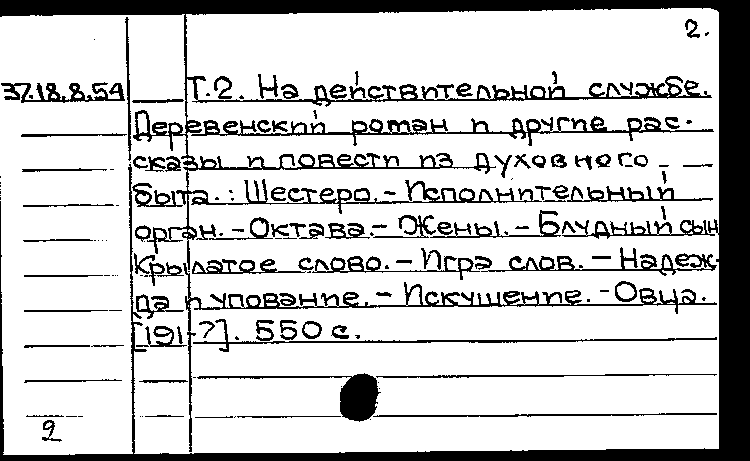 2.
37.18.8.54 Т.2. На действительной службе.
Деревенский роман и другие рас-
сказы и повести из духовного
быта.: Шестеро.- Исполнительный
орган.-Октава.- Жены.- Блудный сын
Крылатое слово.- Игра слов.- Надеж-
да и упование.- Искушение.-Овца.
[191-?]. 550 с.
2